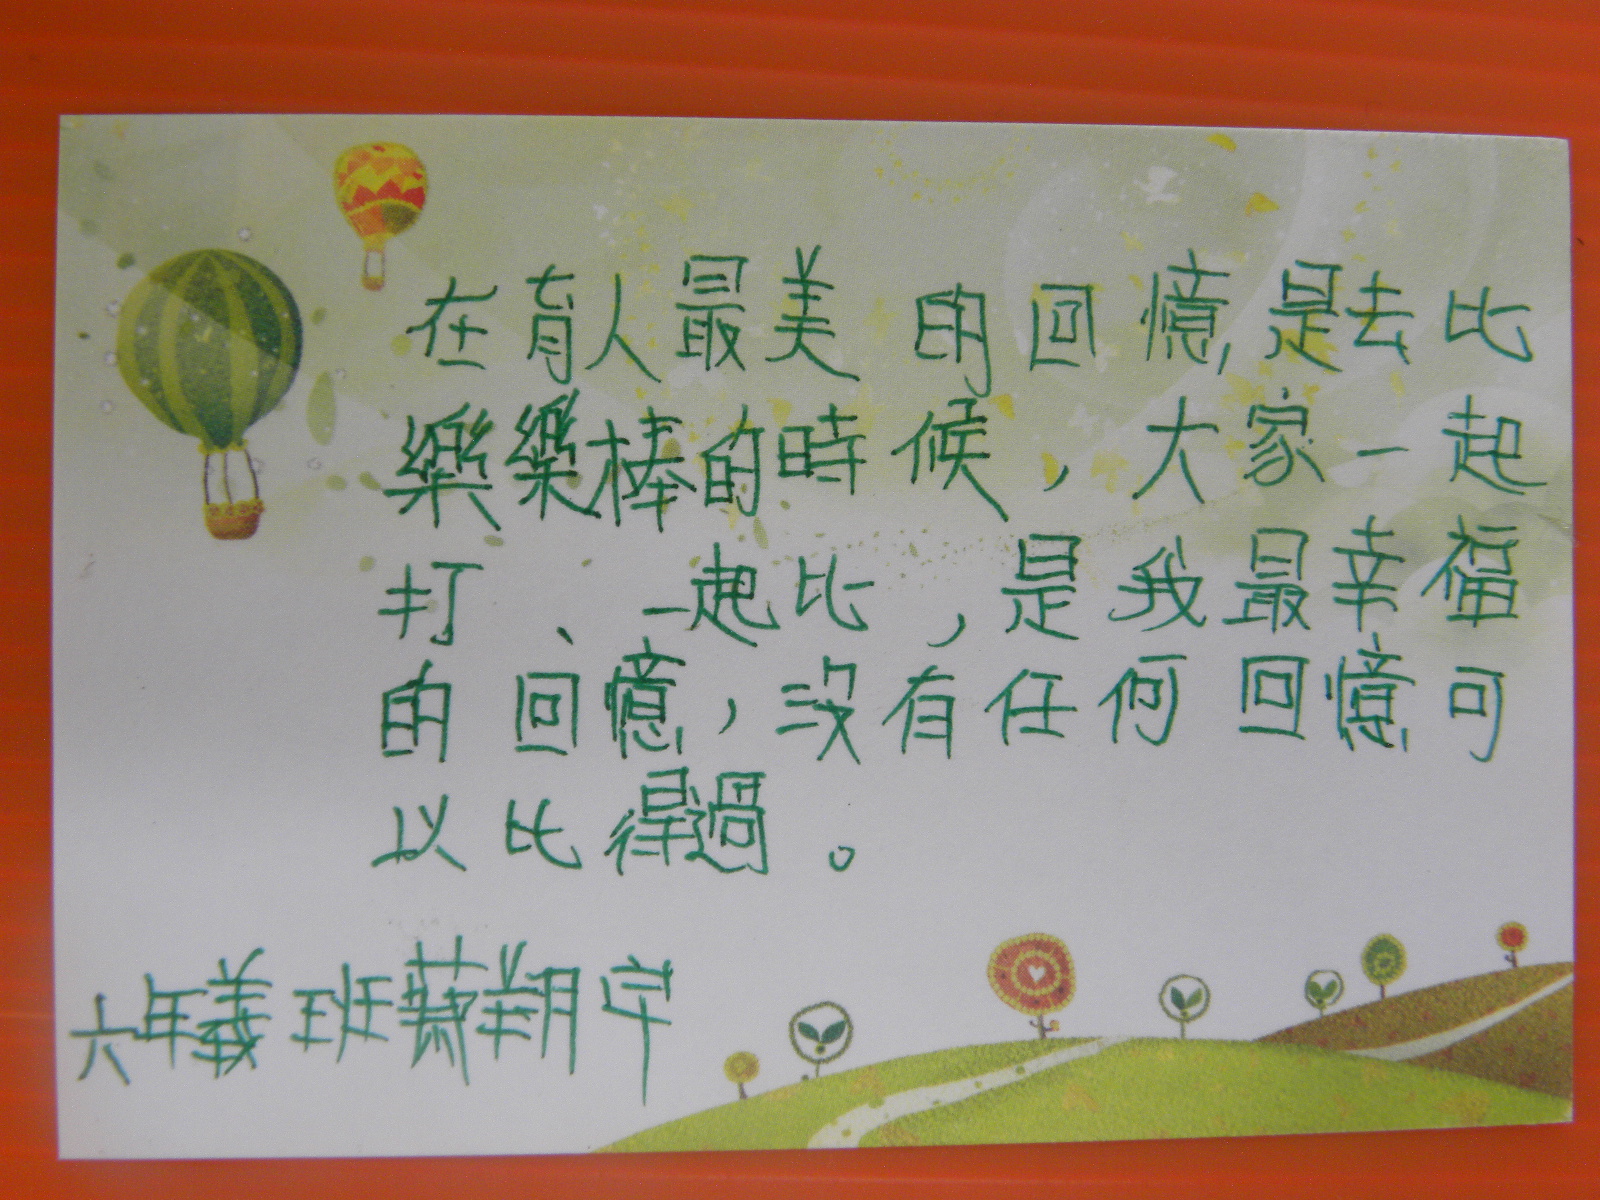 在育人最美的回憶,是去比
樂樂棒的時候，大家一起
打、一起比，是我最幸福
的回憶，沒有任何回憶可
以比得過。
六年義班蕭翔宇